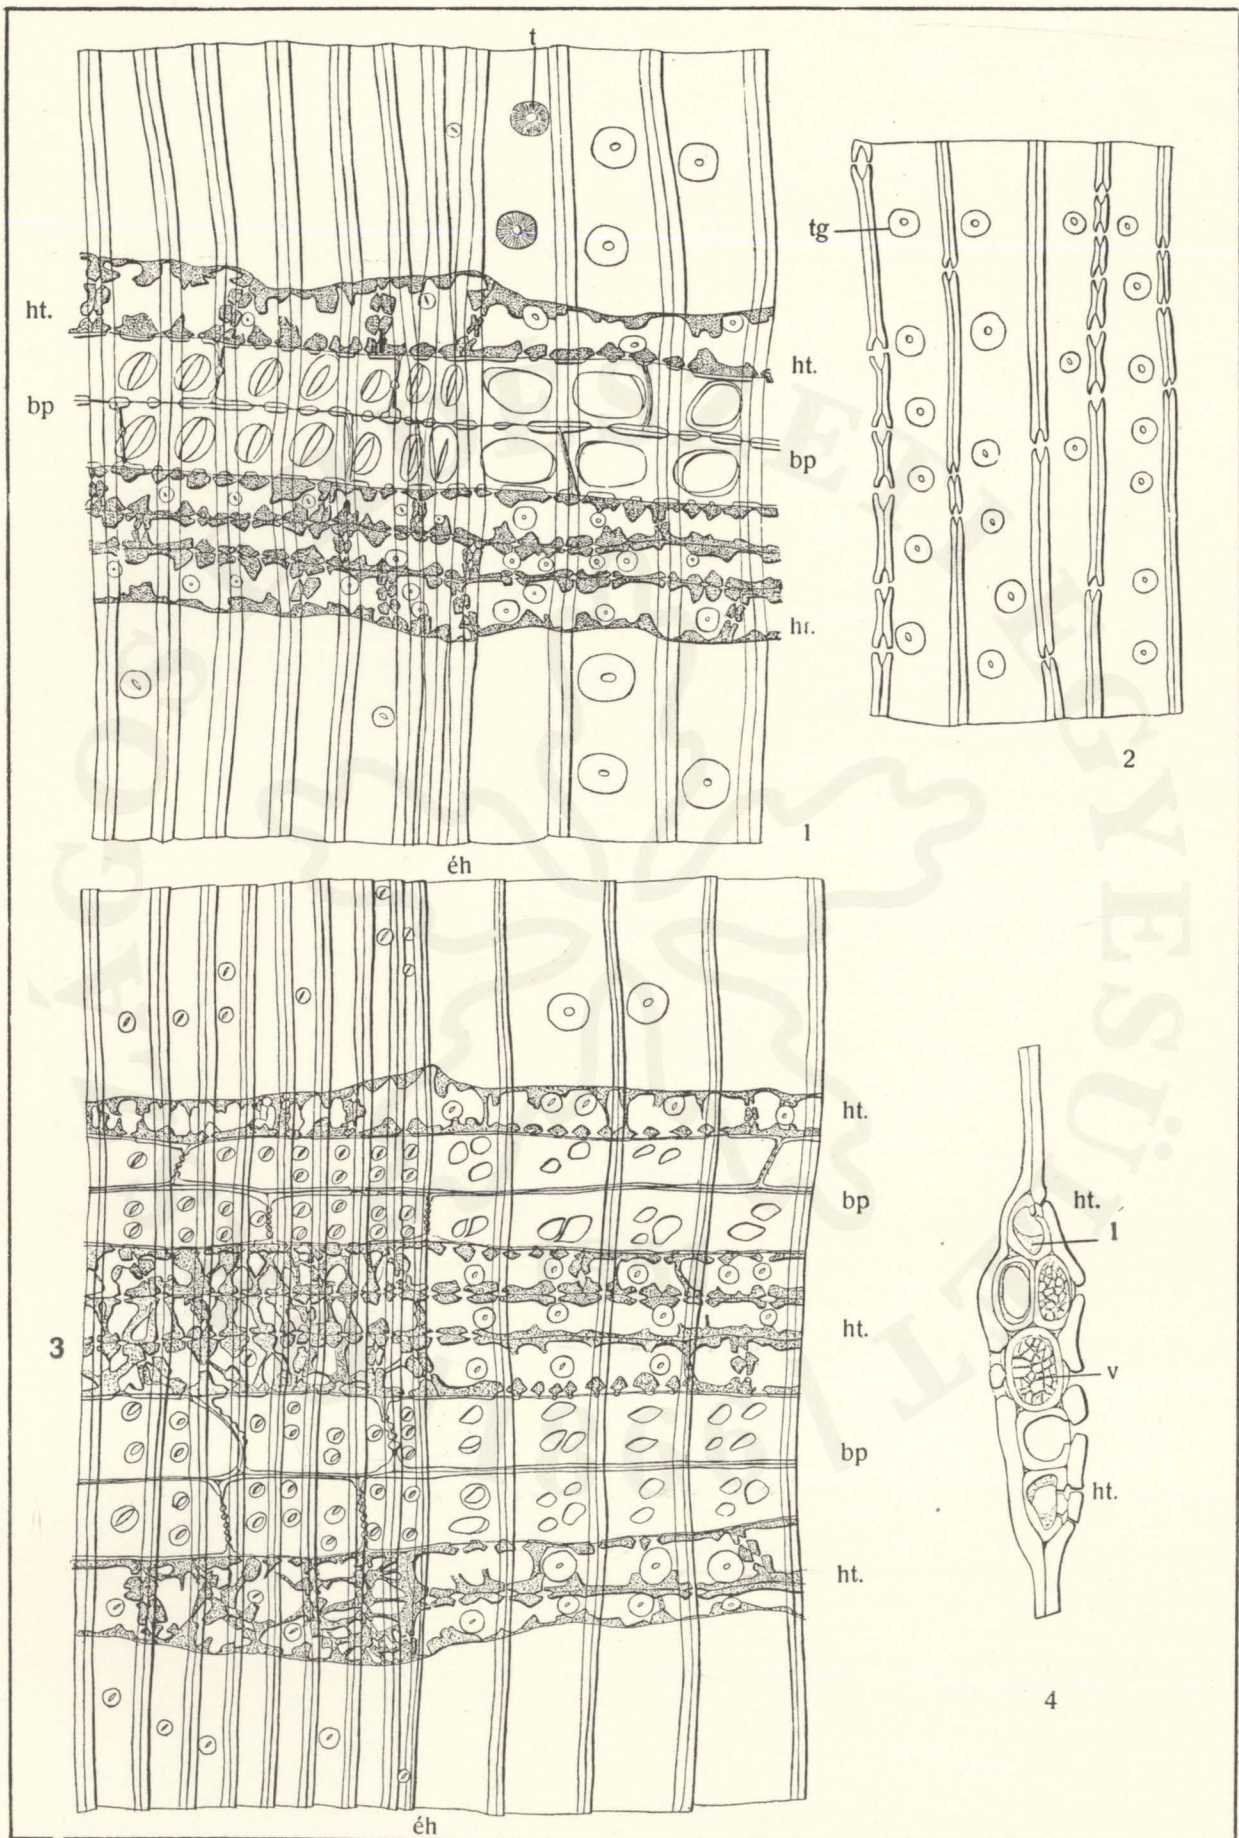 t
ht.
bp
ht.
bp
ht.
1
éh
tg
2
3
ht.
bp
ht.
bp
ht.
éh
ht.
l
v
ht.
4